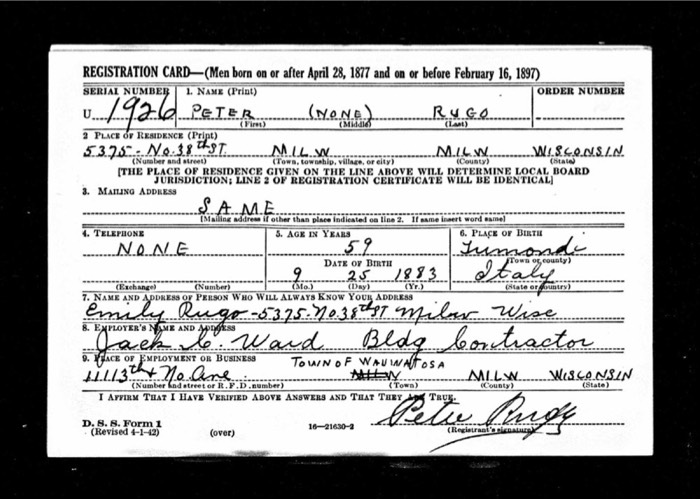 REGISTRATION CARD—(Men born on or after April 28, 1877 and on or before February 16, 1897)
SERIAL NUMBER 1. NAME (Print) ORDER NUMBER
U 1926 PETER (NONE) RUGO
(First) (Middle) (Last)
2 PLACE OF RESIDENCE (Print)
5375-No.38th ST MILW MILW WISCONSIN
(Number and street) (Town, township, village, or city) (County) (State)
[THE PLACE OF RESIDENCE GIVEN ON THE LINE ABOVE WILL DETERMINE LOCAL BOARD
JURISDICTION; LINE 2 OF REGISTRATION CERTIFICATE WILL BE IDENTICAL]
3. MAILING ADDRESS
SAME
[Mailing address if other than place indicated on line 2. If same insert word same]
4. TELEPHONE 5. AGE IN YEARS 6. PLACE OF BIRTH
NONE 59
DATE OF BIRTH (Town or county)
9 25 1883 Italy
(Exchange) (Number) (Mo.) (Day) (Yr.) (State or country)
7. NAME AND ADDRESS OF PERSON WHO WILL ALWAYS KNOW YOUR ADDRESS
Emily Rugo-5375-No.38th ST Milw Wisc
8. EMPLOYER'S NAME AND ADDRESS
Jack C. Ward Bldg Contractor
9. PLACE OF EMPLOYMENT OR BUSINESS TOWN OF WAUWATOSA
113th & No. Ave. MILW MILW WISCONSIN
(Number and street or R. F. D. number) (Town) (County) (State)
I AFFIRM THAT I HAVE VERIFIED ABOVE ANSWERS AND THAT THEY ARE TRUE.
Peter Rugo
D. S. S. Form 1 (Registrant's signature)
(Revised 4-1-42) (over) 16—21630-2